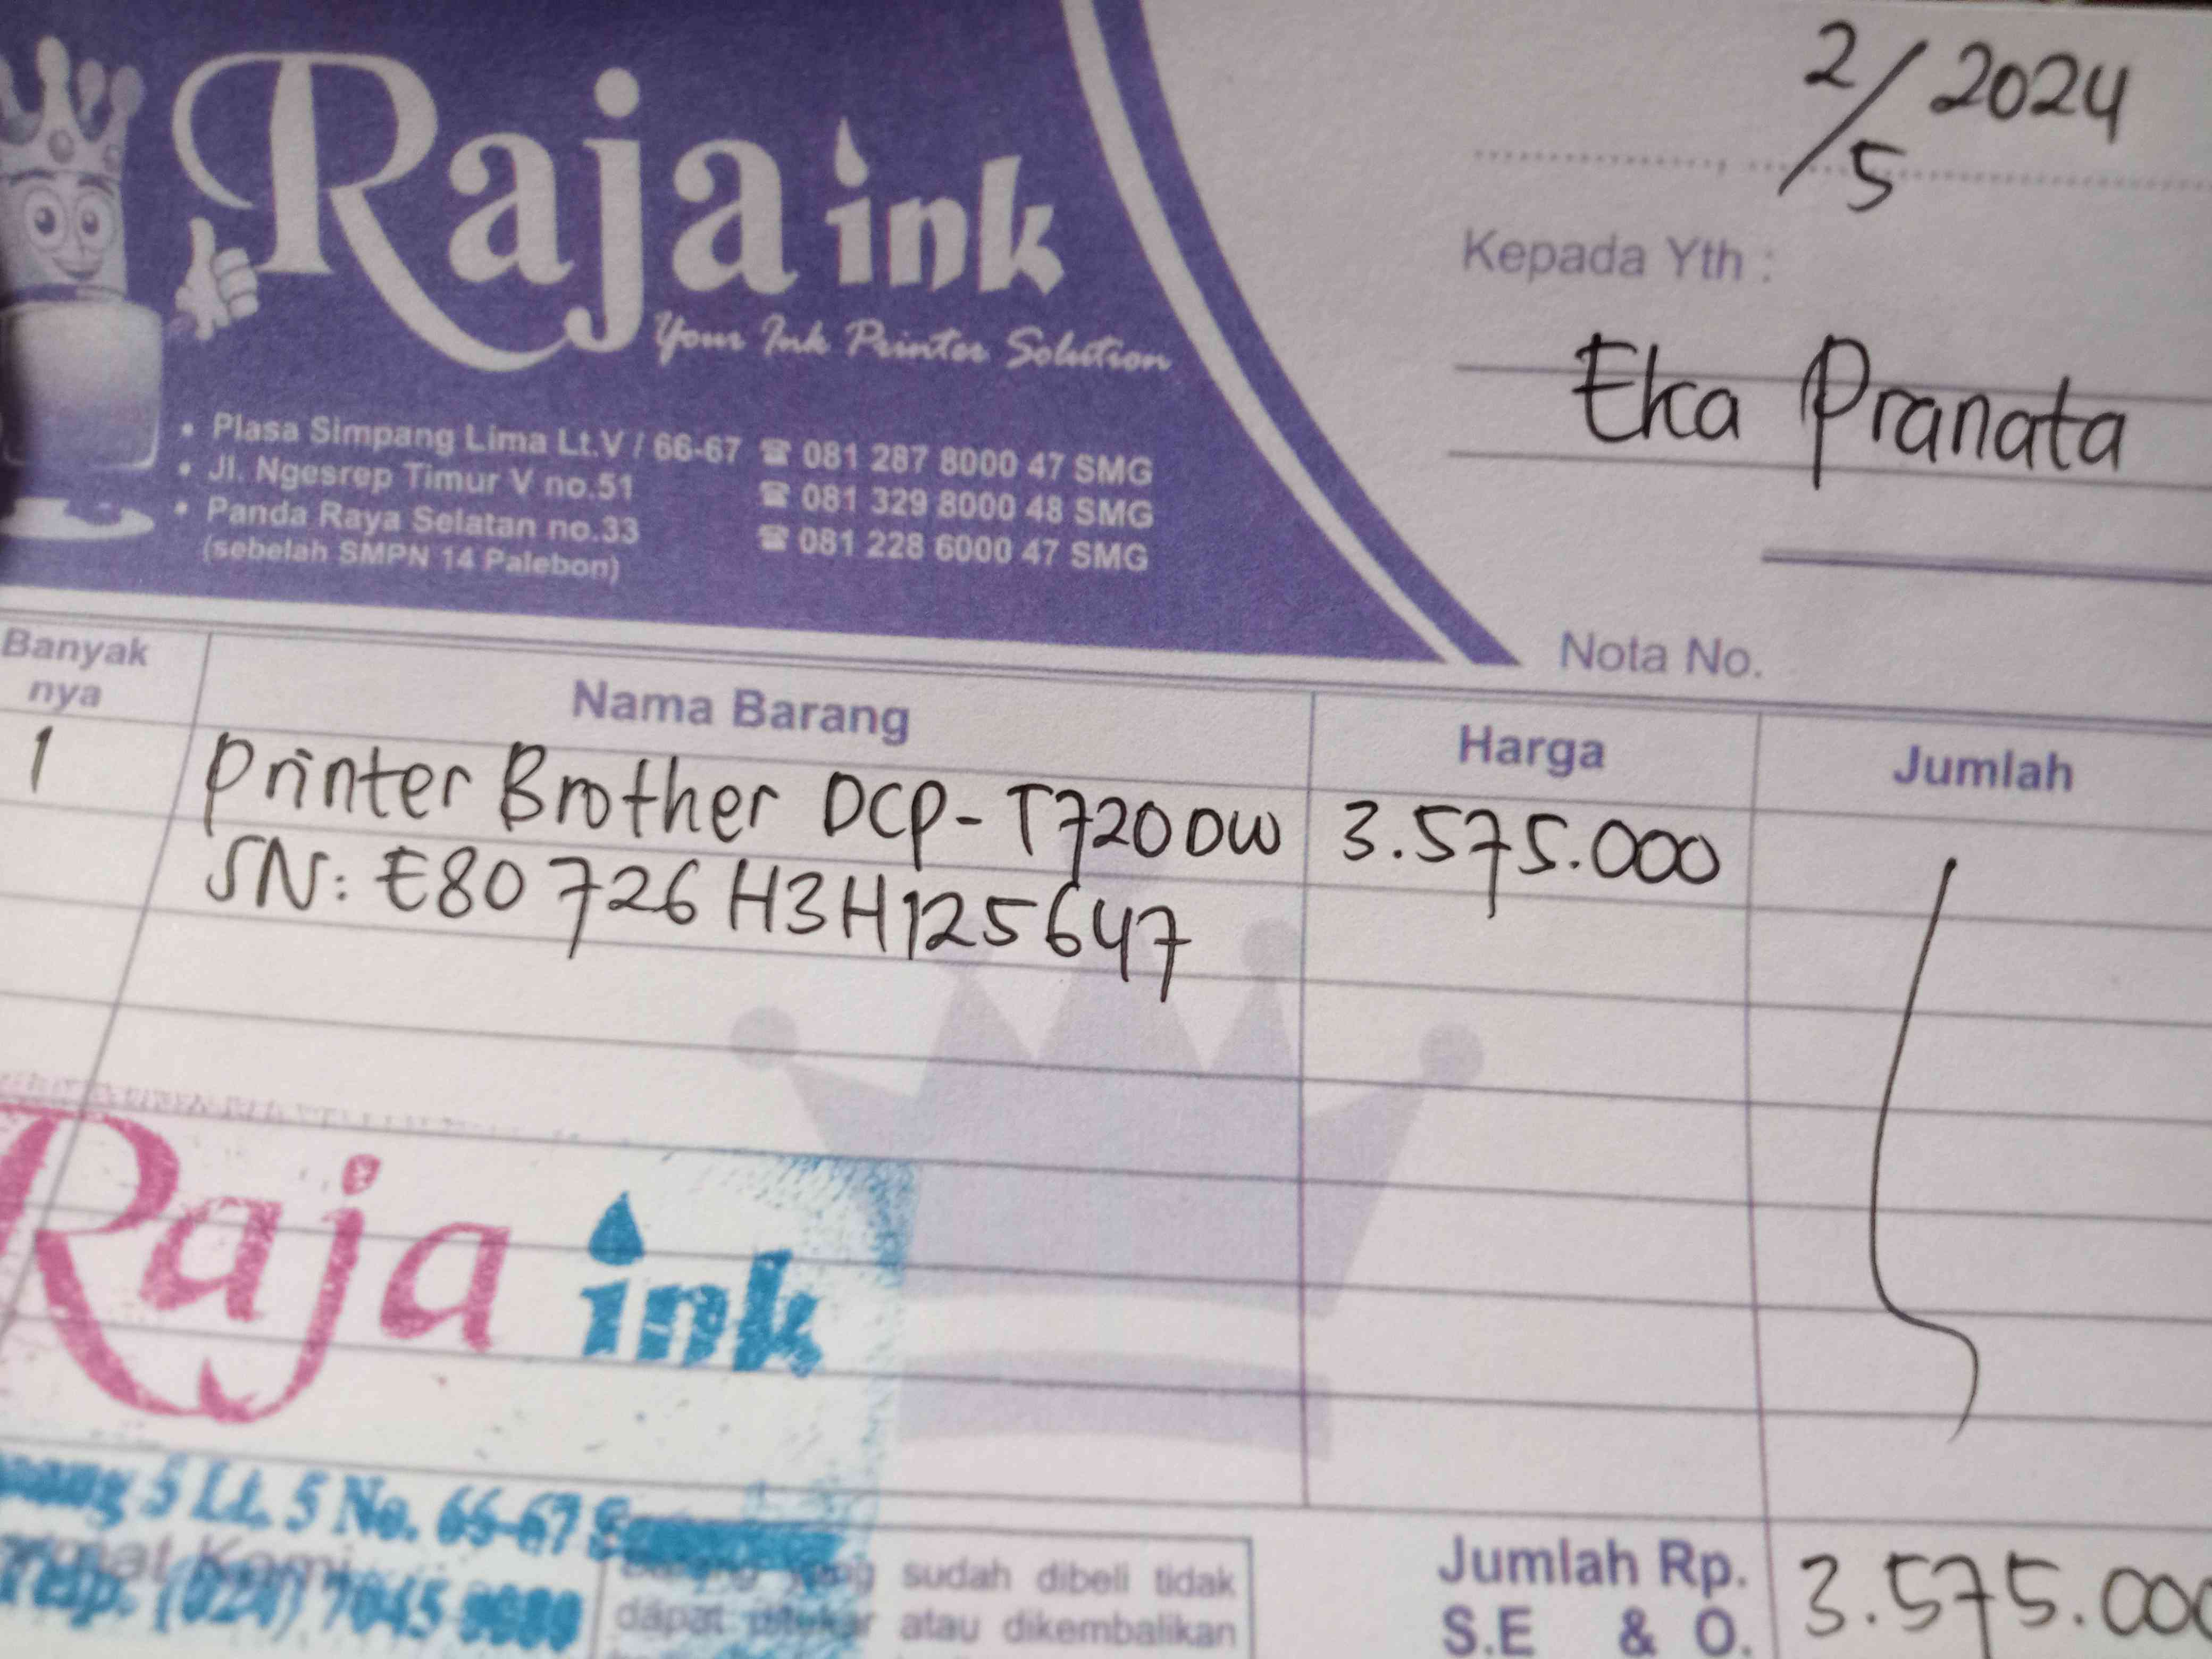 Raja ink
Your Ink Printer Solution
• Plasa Simpang Lima Lt.V / 66-67 ☎ 081 287 8000 47 SMG
• Jl. Ngesrep Timur V no.51 ☎ 081 329 8000 48 SMG
• Panda Raya Selatan no.33 ☎ 081 228 6000 47 SMG
(sebelah SMPN 14 Palebon)
2/5 2024
Kepada Yth :
Eka Pranata
Nota No.
Banyak nya Nama Barang Harga Jumlah
1 Printer Brother DCP-T720DW 3.575.000
SN: E80726H3H125647
Raja ink
5 Lt. 5 No. 66-67
Telp. (024) 7045
sudah dibeli tidak
dapat ditukar atau dikembalikan
Jumlah Rp. 3.575.000
S.E & O.